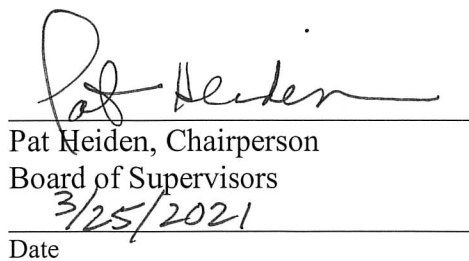 Pat Heiden
Pat Heiden, Chairperson
Board of Supervisors
3/25/2021
Date